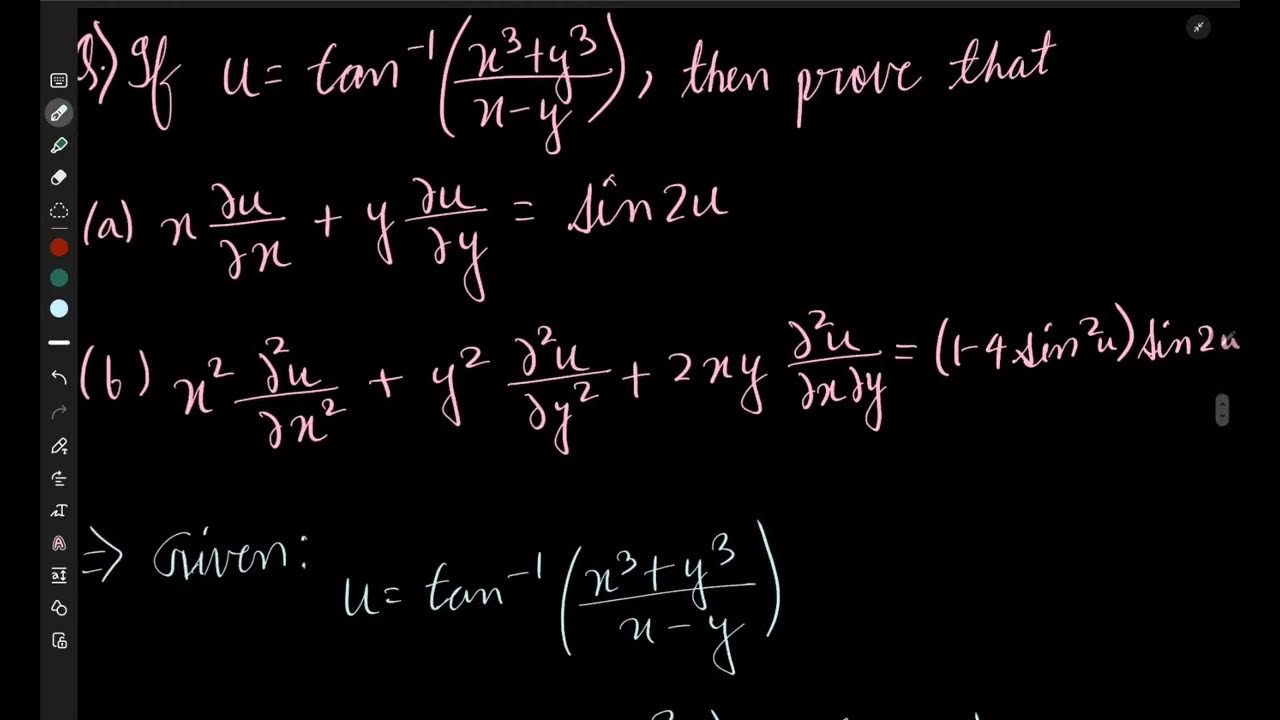 Q.) If u = tan⁻¹((x³+y³)/(x-y)), then prove that
(a) x ∂u/∂x + y ∂u/∂y = sin2u
(b) x² ∂²u/∂x² + y² ∂²u/∂y² + 2xy ∂²u/∂x∂y = (1-4sin²u)sin2u
⇒ Given:
u = tan⁻¹((x³+y³)/(x-y))